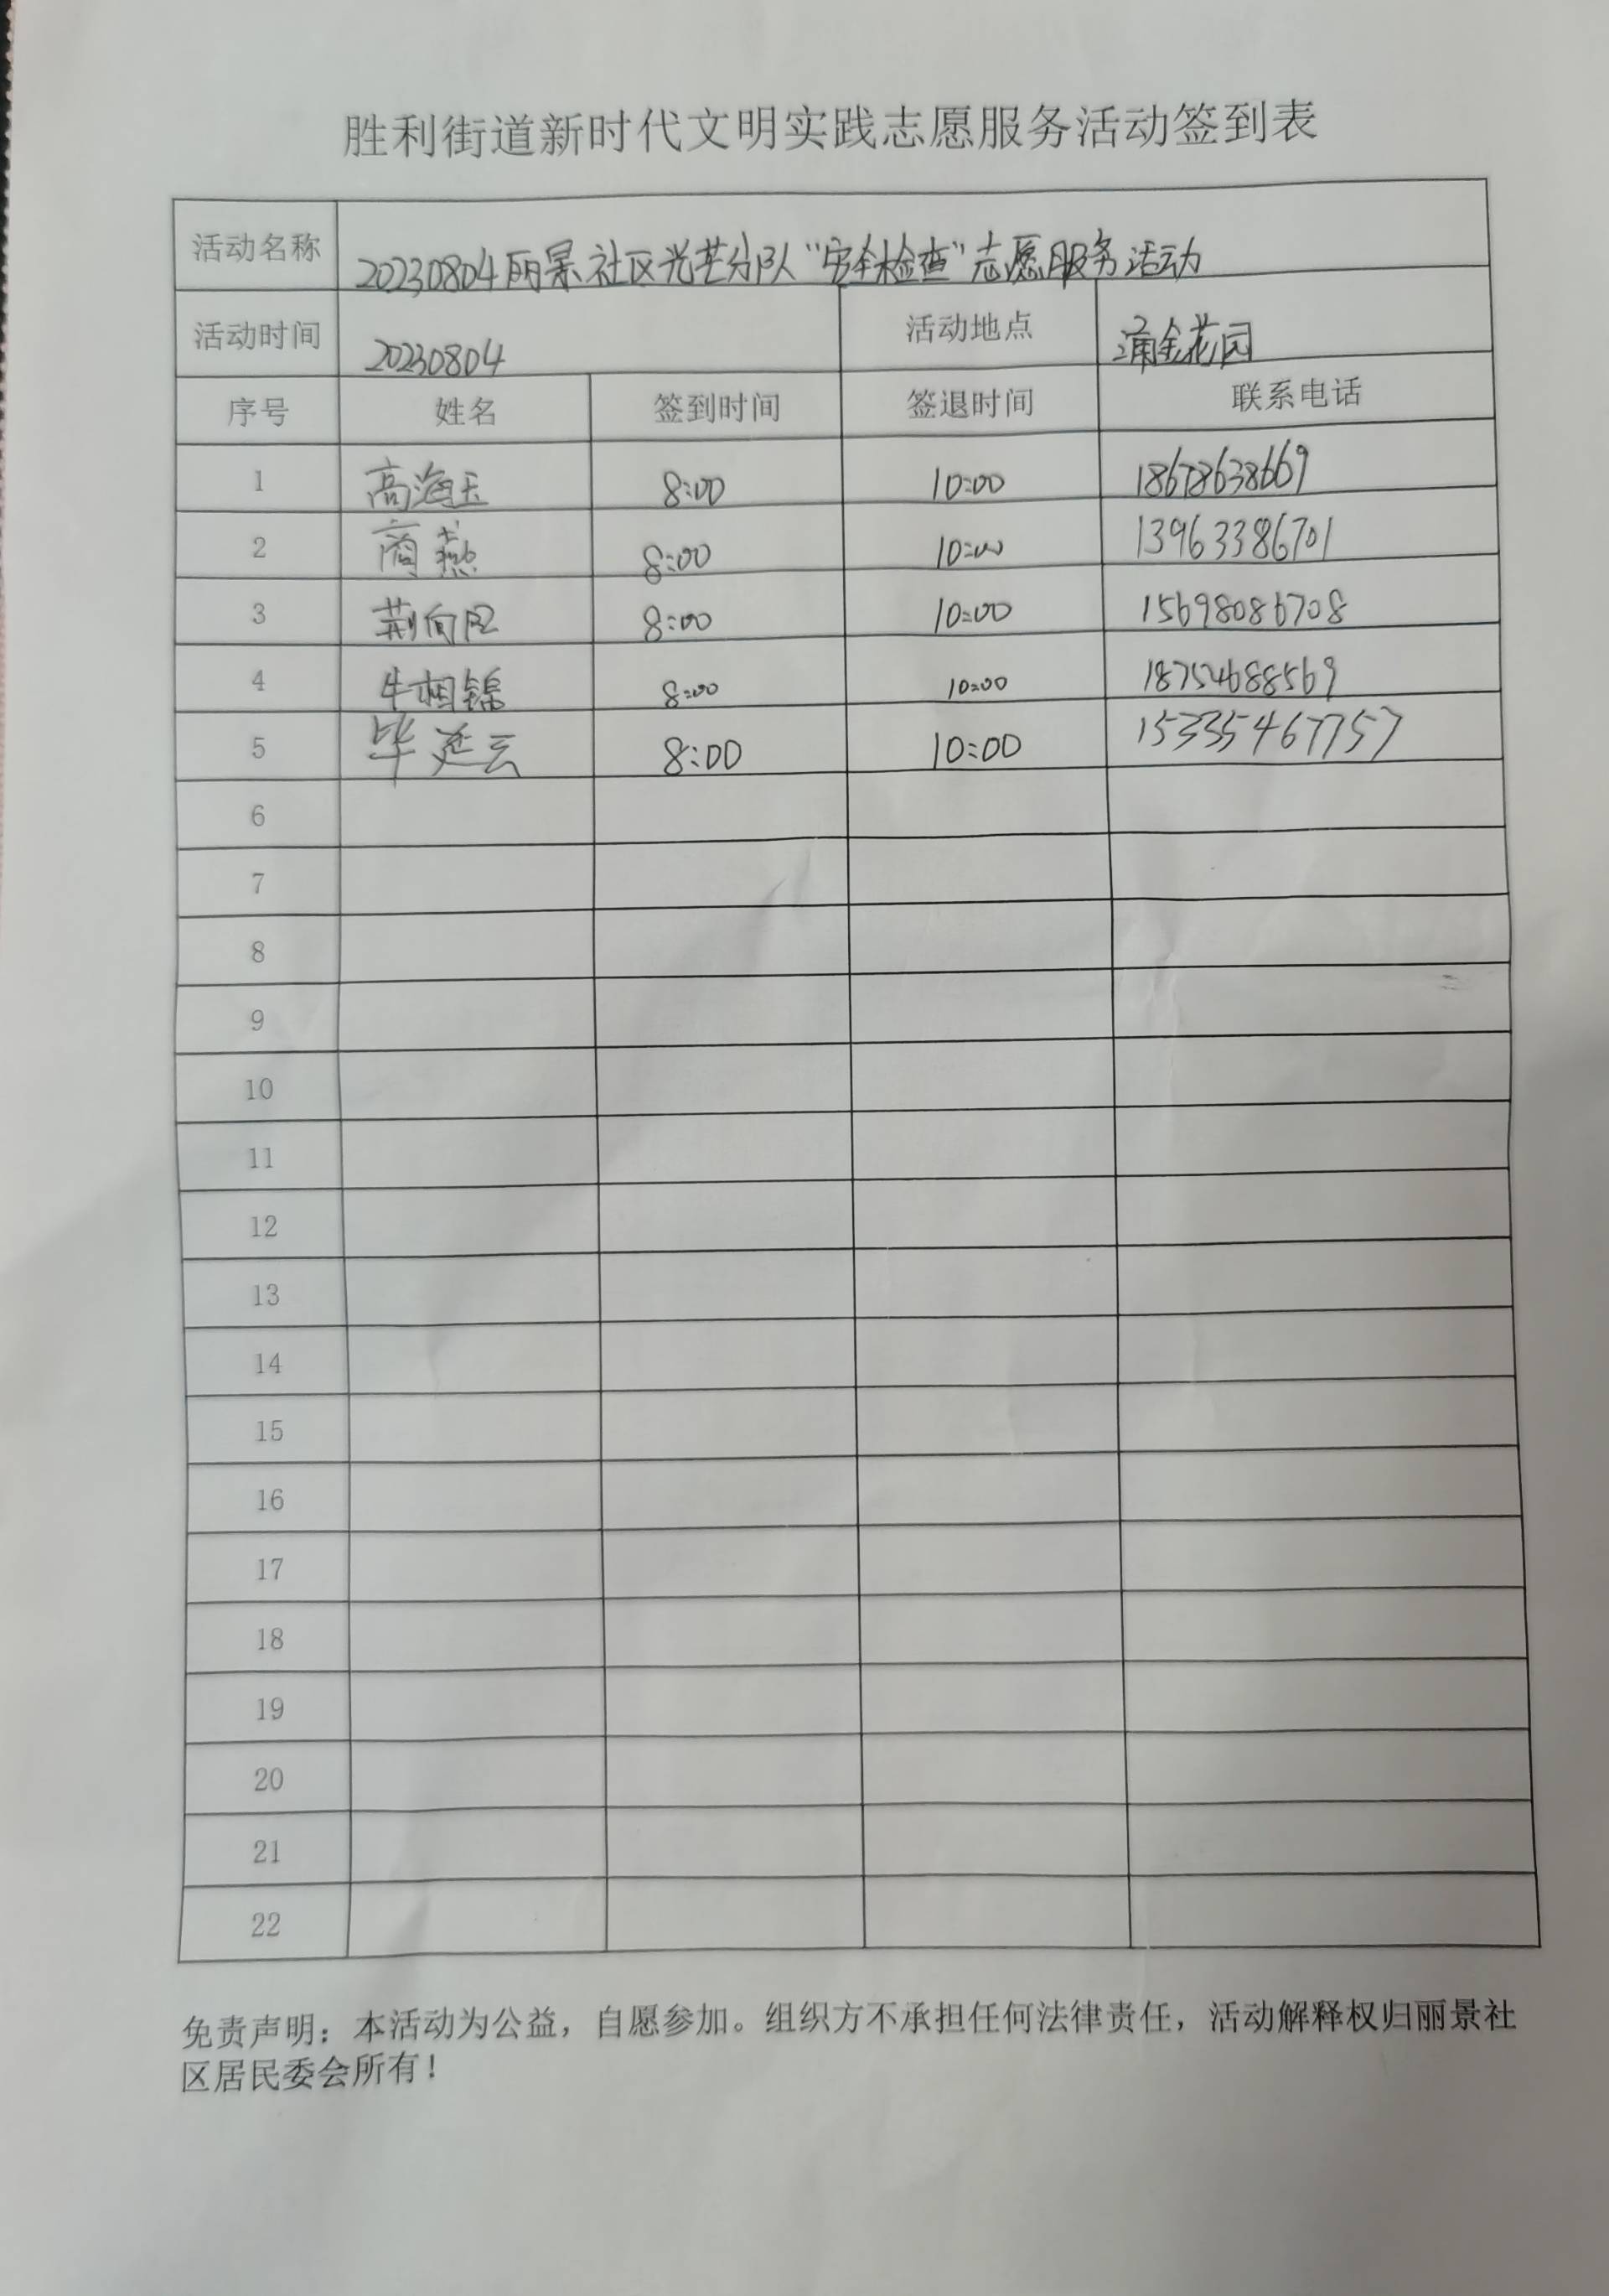 胜利街道新时代文明实践志愿服务活动签到表
活动名称 20230804丽景社区光芒分队“安全检查”志愿服务活动
活动时间 20230804 活动地点 蒲金花园
序号 姓名 签到时间 签退时间 联系电话
1 高海玉 8:00 10:00 18678638669
2 商燕 8:00 10:00 13963386701
3 荆向 8:00 10:00 15698086708
4 牛相锦 8:00 10:00 18754688569
5 毕延云 8:00 10:00 15335467757
6
7
8
9
10
11
12
13
14
15
16
17
18
19
20
21
22
免责声明：本活动为公益，自愿参加。组织方不承担任何法律责任，活动解释权归丽景社
区居民委会所有！